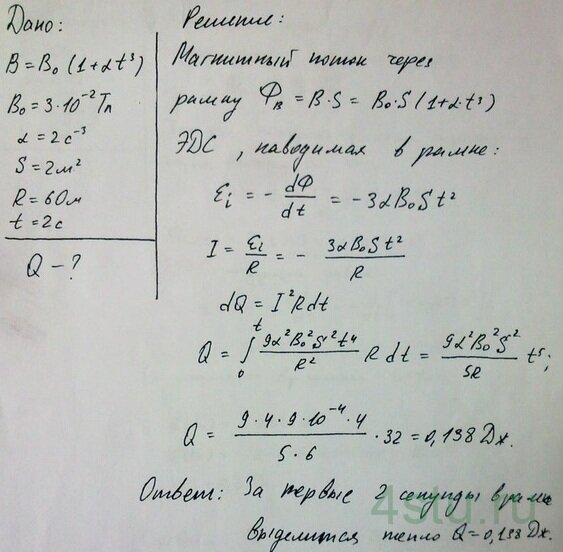 Дано:
B = B₀ (1 + αt³)
B₀ = 3·10⁻² Тл
α = 2 с⁻³
S = 2 м²
R = 6 Ом
t = 2 с
Q - ?
Решение:
Магнитный поток через
рамку Ф_B = B·S = B₀·S (1 + α·t³)
ЭДС, наводимая в рамке:
ℰi = - dФ/dt = - 3αB₀St²
I = ℰi/R = - 3αB₀St²/R
dQ = I²Rdt
Q = ∫₀ᵗ 9α²B₀²S²t⁴/R² R dt = 9α²B₀²S²/5R t⁵;
Q = 9·4·9·10⁻⁴·4/5·6 · 32 = 0,138 Дж.
Ответ: За первые 2 секунды в рамке
выделится тепло Q = 0,138 Дж.
4stu.ru